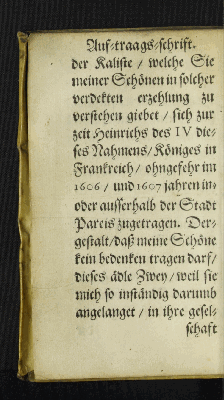 Auf-traags-schrift.
der Kaliste / welche Sie
meiner Schönen in solcher
verdekten erzehlung zu
verstehen giebet / sich zur
zeit Heinrichs des IV die-
ses Nahmens / Königes in
Frankreich / ohngefehr im
1606 / und 1607 jahren in-
oder ausserhalb der Stadt
Pareis zugetragen. Der-
gestalt / daß meine Schöne
kein bedenken tragen darf /
dieses ädle Zwey / weil sie
mich so inständig darumb
angelanget / in ihre gesel-
schaft